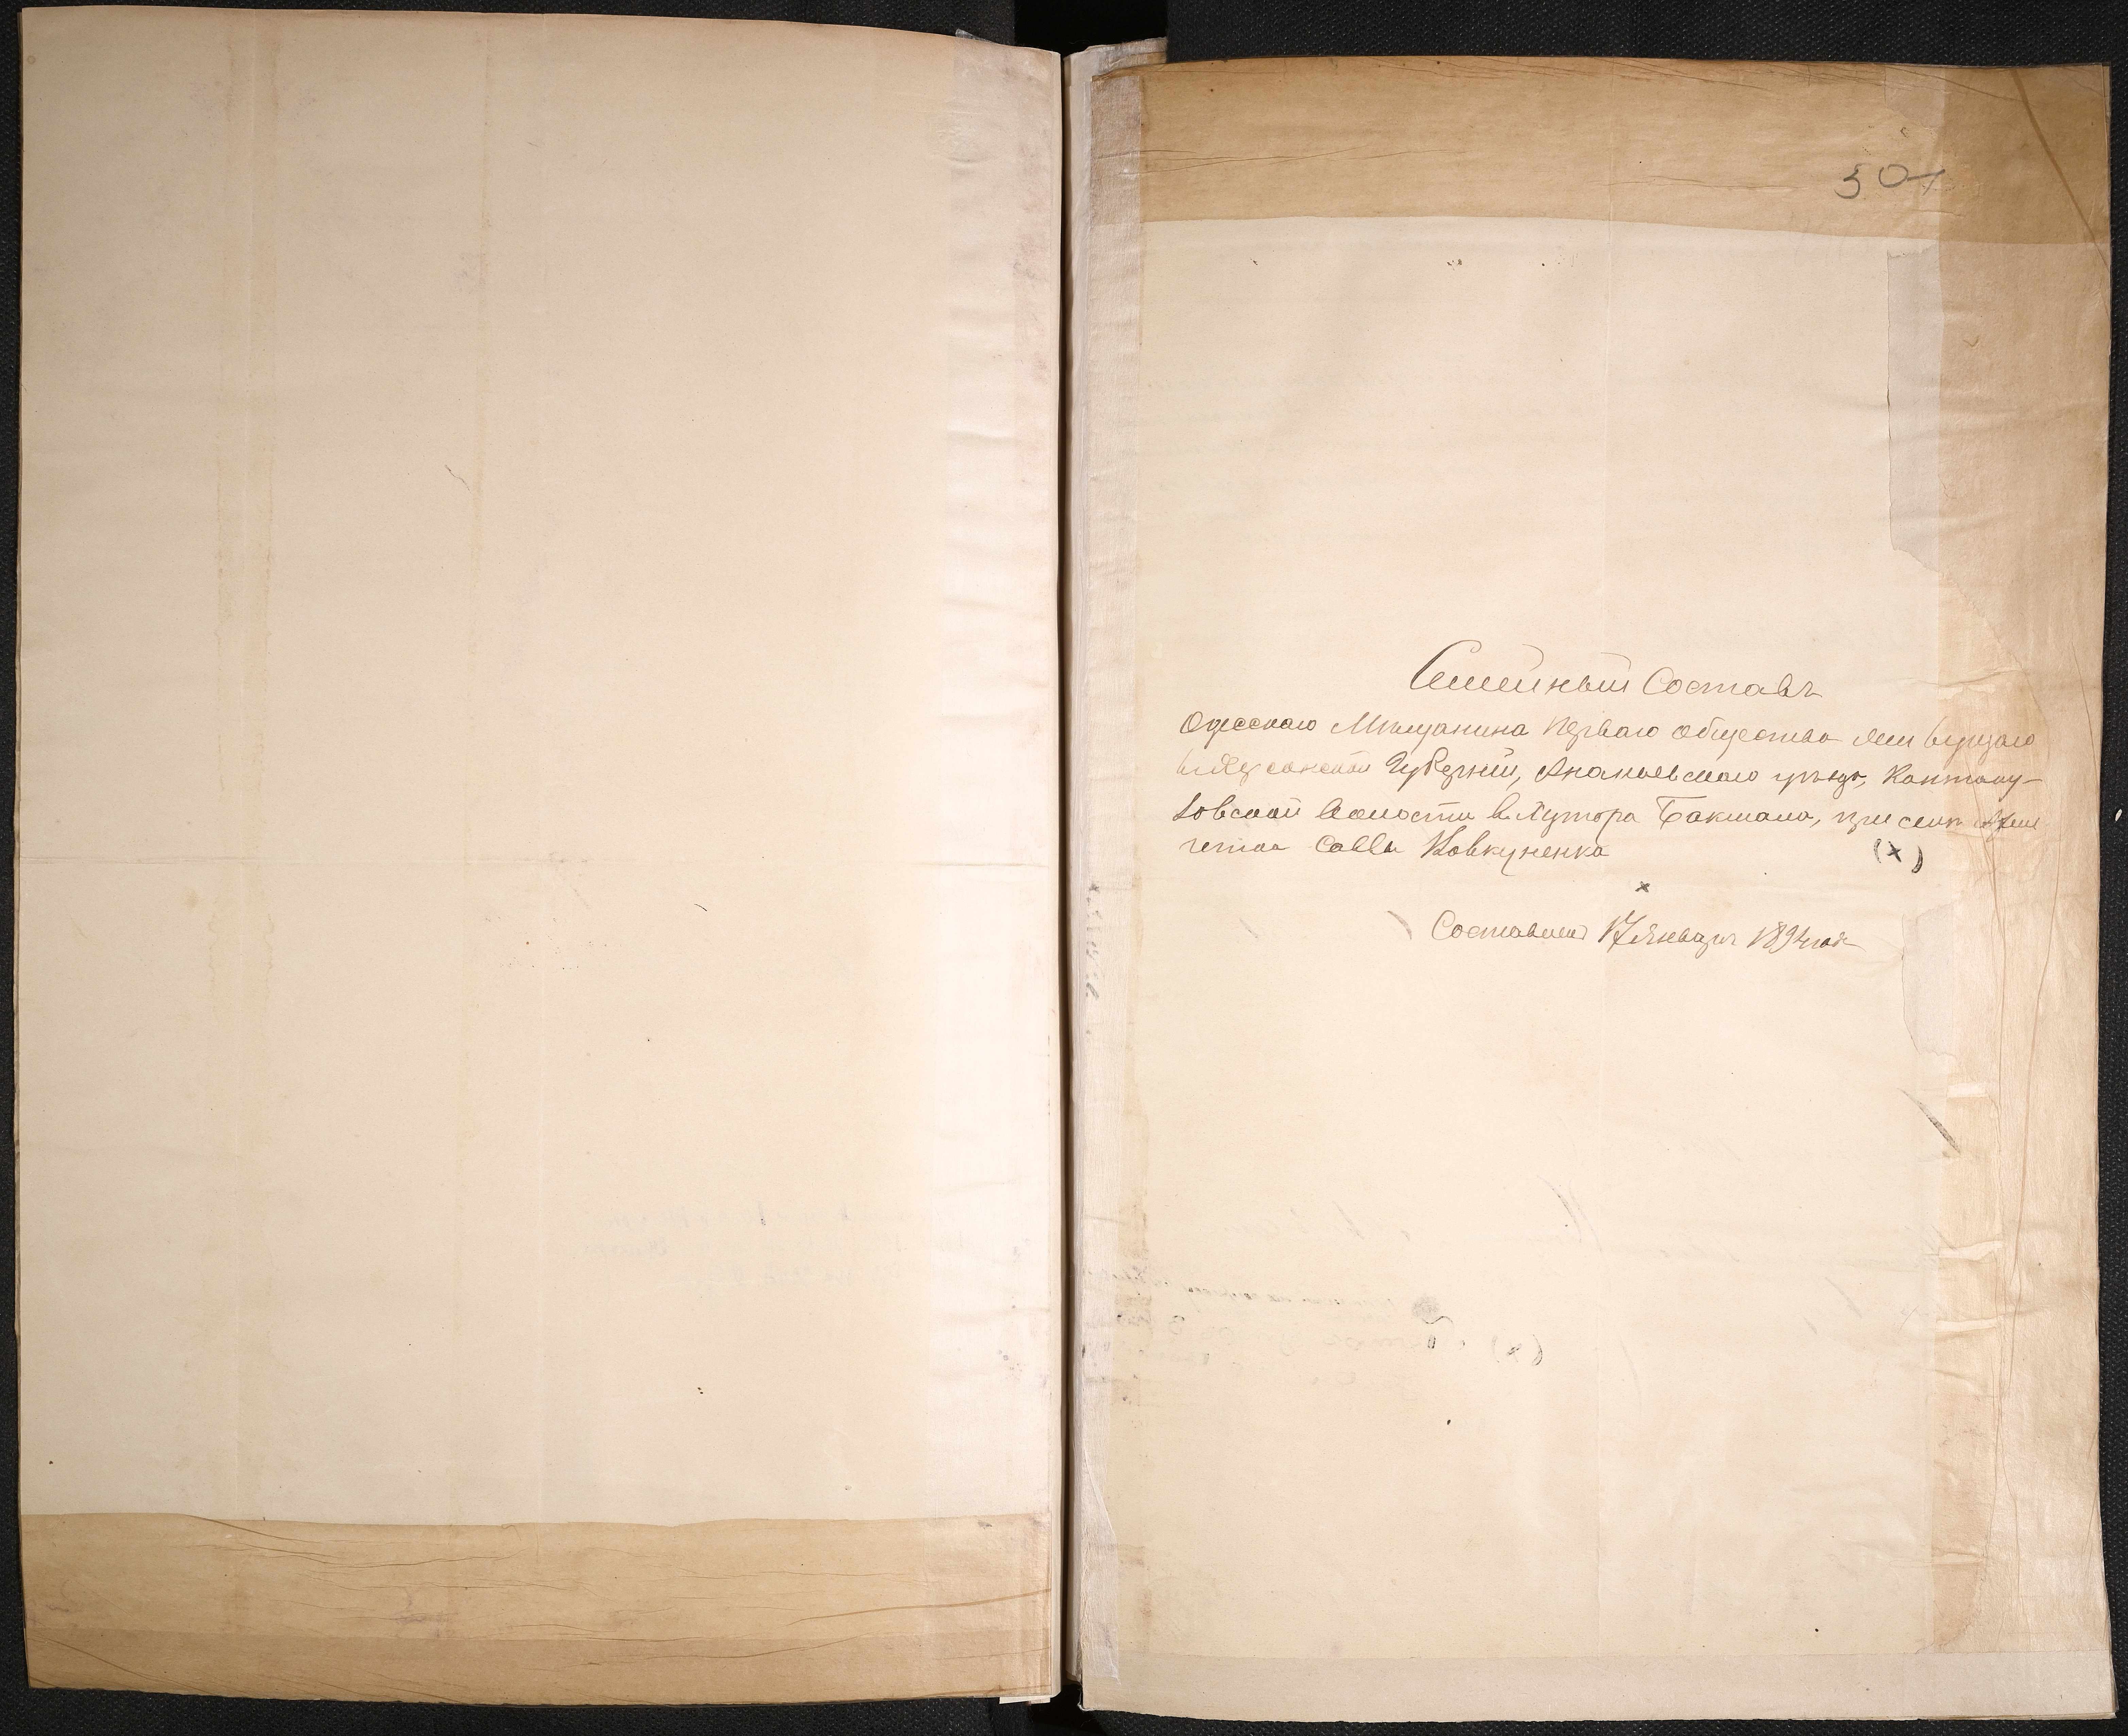 501
Семейный Составъ
Одесскаго Мѣщанина перваго общества
Херсонской Губерніи, Ананьевскаго уѣзда, Кантаку-
зовской Волости в. Хутора Бакшала, при
Саввы Ковкуненка (х)
х
Составленъ 17 Января 1894 года